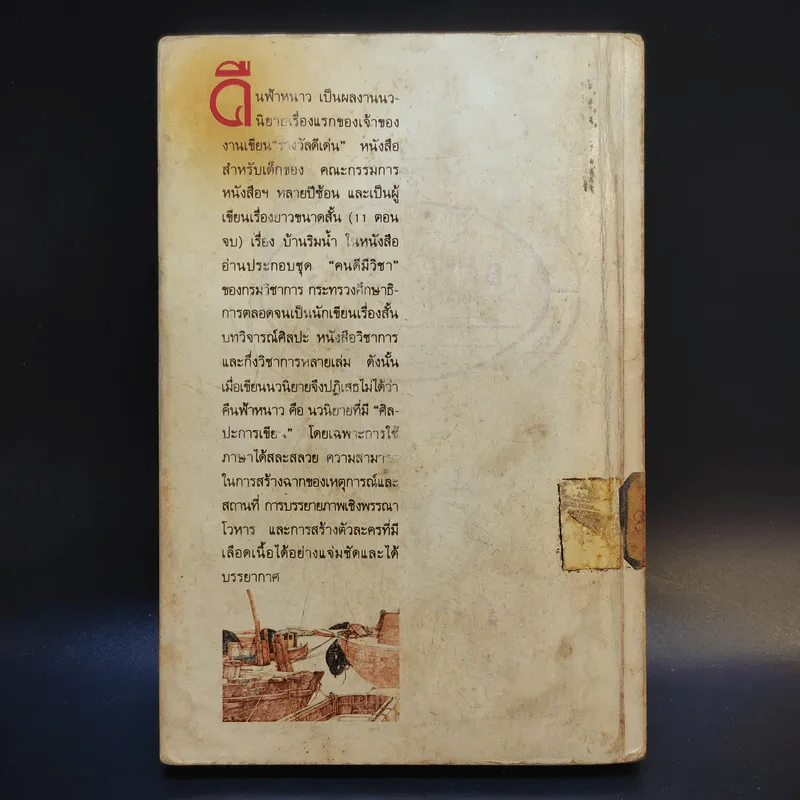 คืนฟ้าหนาว เป็นผลงานนว-
นิยายเรื่องแรกของเจ้าของ
งานเขียน"รางวัลดีเด่น" หนังสือ
สำหรับเด็กของ คณะกรรมการ
หนังสือฯ หลายปีซ้อน และเป็นผู้
เขียนเรื่องยาวขนาดสั้น (11 ตอน
จบ) เรื่อง บ้านริมน้ำ ในหนังสือ
อ่านประกอบชุด "คนดีมีวิชา"
ของกรมวิชาการ กระทรวงศึกษาธิ-
การตลอดจนเป็นนักเขียนเรื่องสั้น
บทวิจารณ์ศิลปะ หนังสือวิชาการ
และกึ่งวิชาการหลายเล่ม ดังนั้น
เมื่อเขียนนวนิยายจึงปฏิเสธไม่ได้ว่า
คืนฟ้าหนาว คือ นวนิยายที่มี "ศิล-
ปะการเขียน" โดยเฉพาะการใช้
ภาษาได้สละสลวย ความสามารถ
ในการสร้างฉากของเหตุการณ์และ
สถานที่ การบรรยายภาพเชิงพรรณา
โวหาร และการสร้างตัวละครที่มี
เลือดเนื้อได้อย่างแจ่มชัดและได้
บรรยากาศ